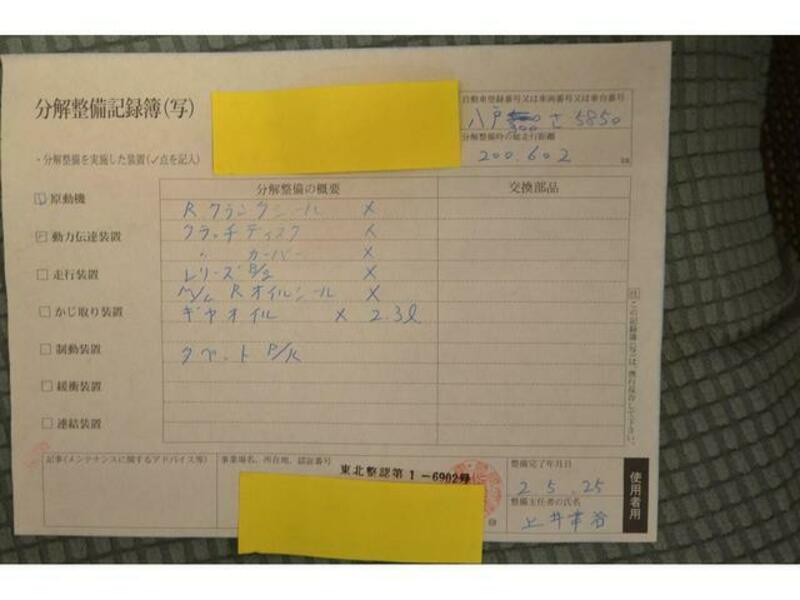 分解整備記録簿(写)
自動車登録番号又は車両番号又は車台番号
八戸 500 さ 5850
分解整備時の総走行距離
200,602 km
・分解整備を実施した装置(✓点を記入)
分解整備の概要 交換部品
原動機
動力伝達装置
走行装置
かじ取り装置
制動装置
緩衝装置
連結装置
Rクランクシール ×
クラッチディスク ×
〃 カバー ×
レリーズB/g ×
M/m Rオイルシール ×
ギヤオイル × 2.3ℓ
クペット P/K
注 この記録簿(写)は、携行保存して下さい。
記事(メンテナンスに関するアドバイス等)
事業場名、所在地、認証番号
東北整認第1-6902号
整備完了年月日
2.5.25
整備主任者の氏名
使用者用